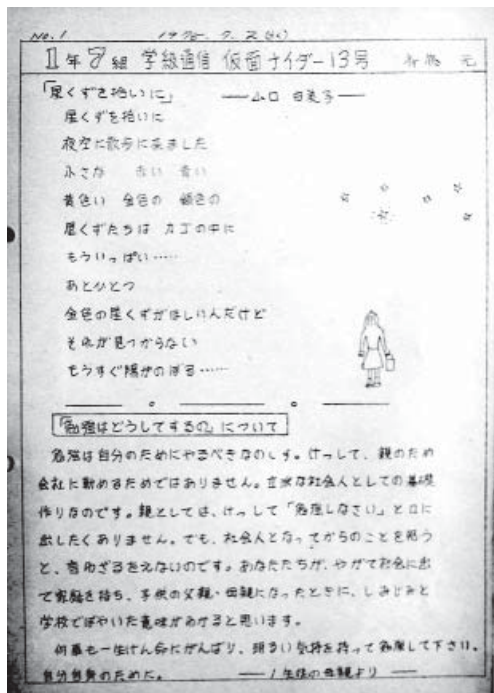 No.1 1978.7.2
1年7組 学級通信 仮面ナイダー13号 元
「星くずを拾いに」 ——山口 由美子——
星くずを拾いに
夜空に散歩に来ました
小さな 赤い 青い
黄色い 金色の 銀色の
星くずたちは カゴの中に
もういっぱい……
あとひとつ
金色の星くずがほしいんだけど
それが見つからない
もうすぐ陽がのぼる……
「勉強はどうしてするの」について
勉強は自分のためにやるべきなのです。けっして、親のため
会社に勤めるためではありません。立派な社会人としての基礎
作りなのです。親としては、けっして「勉強しなさい」と口に
出したくありません。でも、社会人となってからのことを思う
と、言わざるをえないのです。あなたたちが、やがて社会に出
て家庭を持ち、子供の父親・母親になったときに、しみじみと
学校でぼやいた意味がわかると思います。
何事も一生けん命にがんばり、明るい気持を持って勉強して下さい。
自分自身のために。 ——1生徒の母親より——